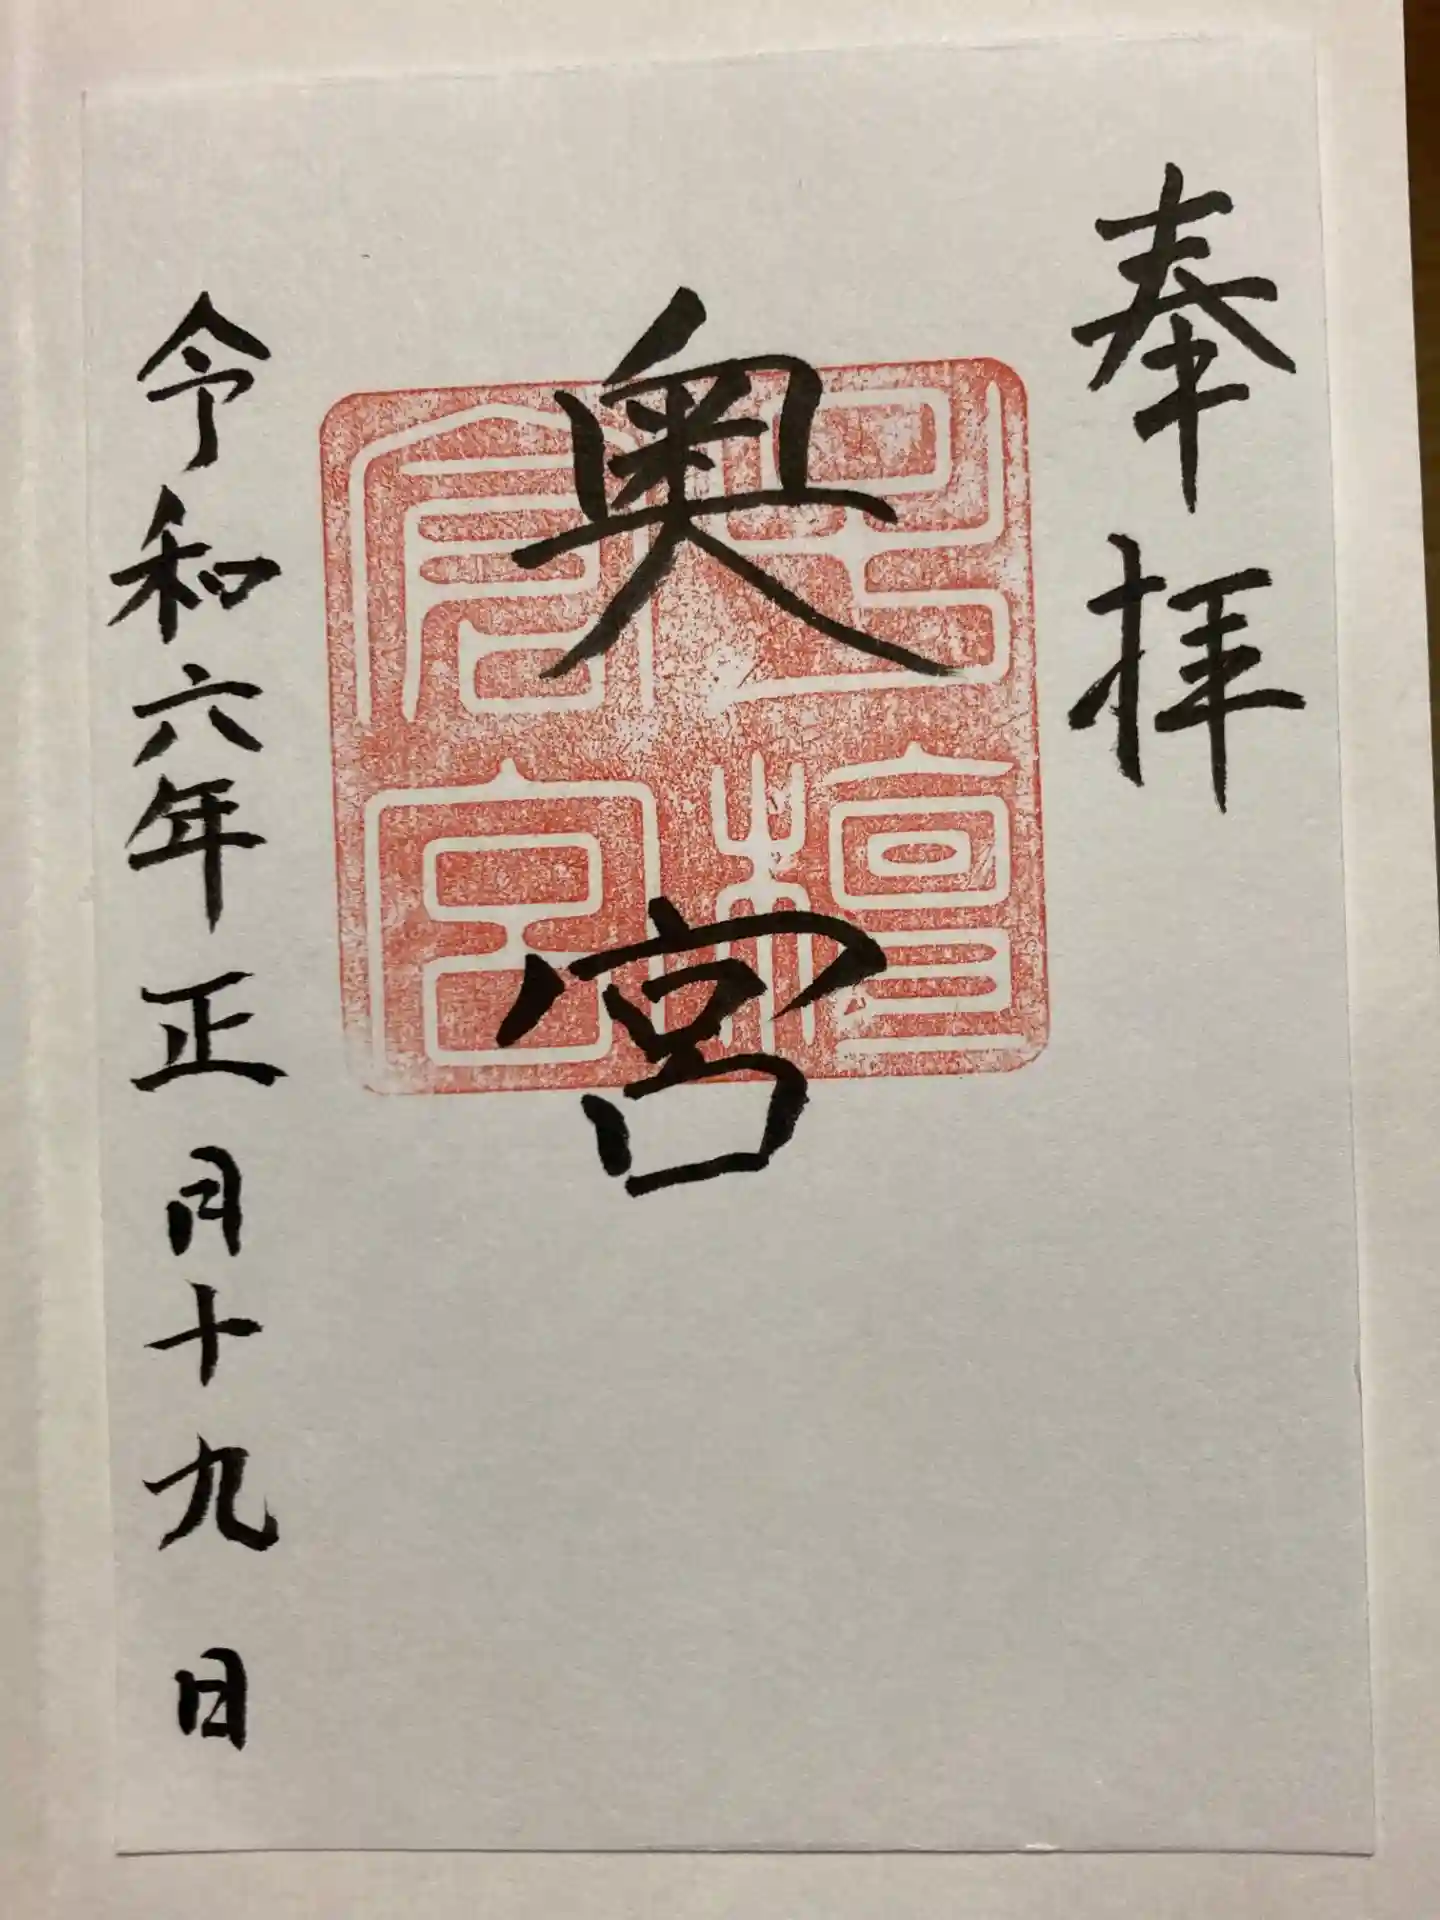 奉拝
奥宮
令和六年正月十九日